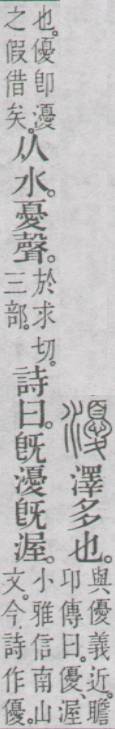 瀀澤多也。
與優義近。瞻
卬傳曰。優、渥
也。優卽瀀
之假借矣。
从水。憂聲。
於求切。
三部。
詩曰。旣瀀旣渥。
小雅信南山
文。今詩作優。